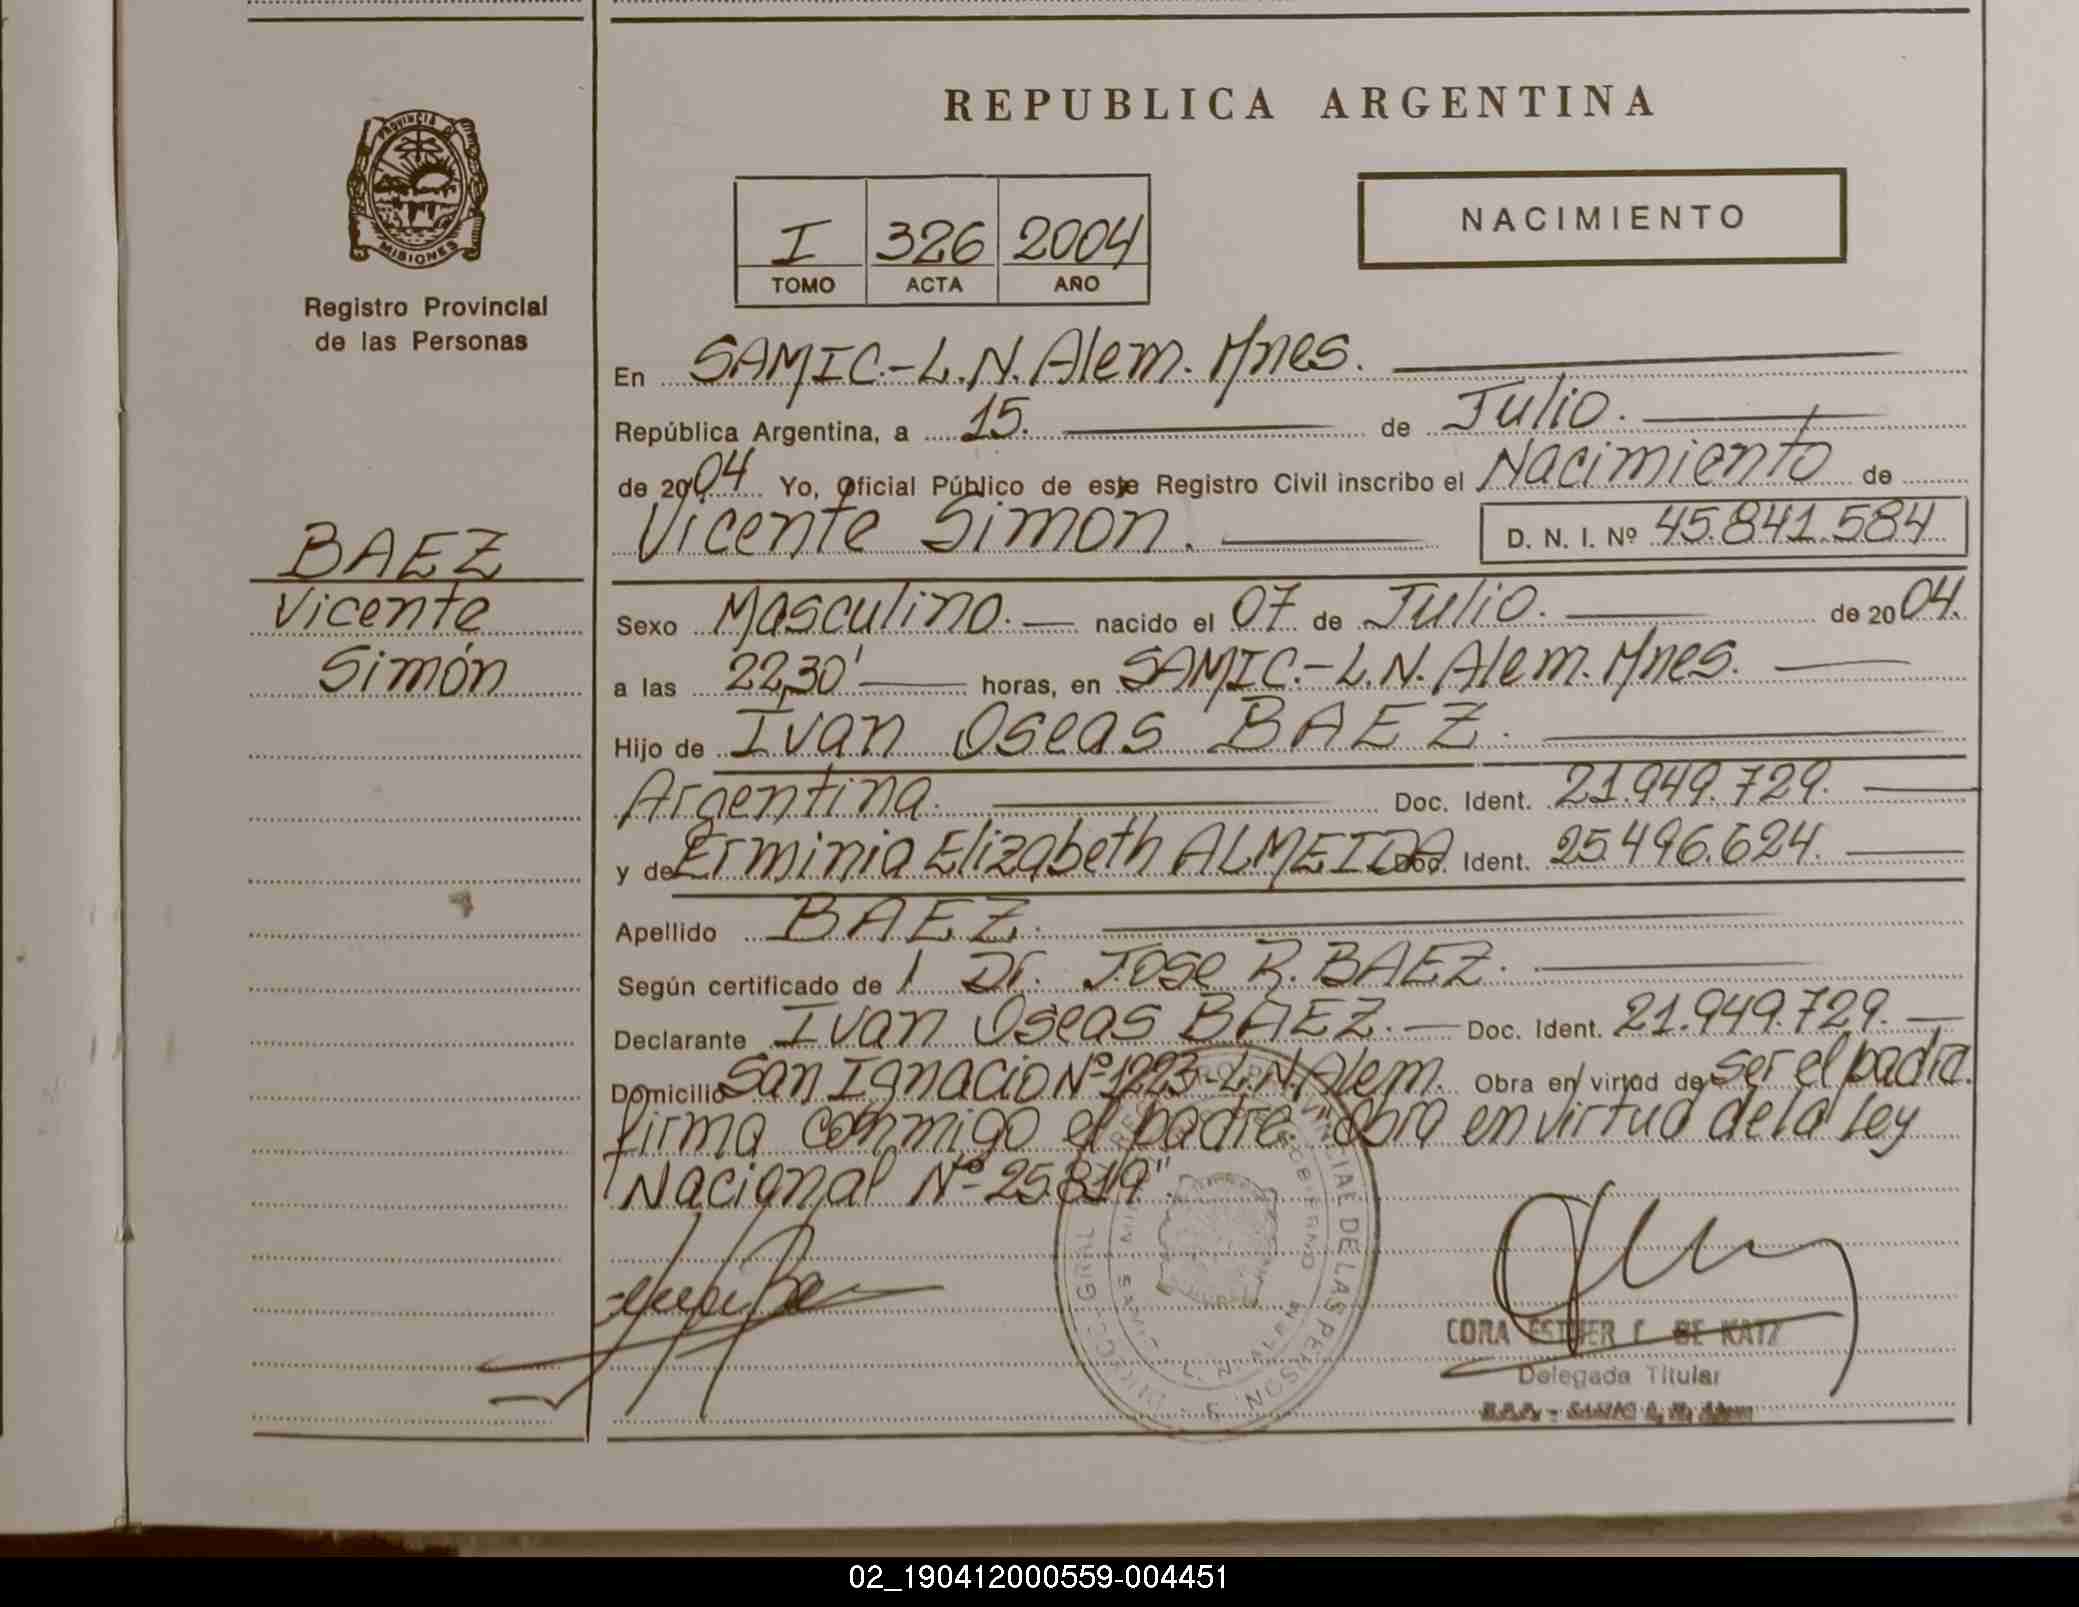 REPUBLICA ARGENTINA
PROVINCIA DE
MISIONES
Registro Provincial
de las Personas
I 326 2004
TOMO ACTA AÑO
NACIMIENTO
En SAMIC.-L.N.Alem.Mnes.
República Argentina, a 15. de Julio.
de 2004 Yo, Oficial Público de este Registro Civil inscribo el Nacimiento de
Vicente Simon. D. N. I. Nº 45.841.584
BAEZ
Vicente
Simón
Sexo Masculino.- nacido el 07 de Julio. de 2004.
a las 22,30' horas, en SAMIC.-L.N.Alem.Mnes.
Hijo de Ivan Oseas BAEZ.
Argentina. Doc. Ident. 21.949.729.
y de Erminia Elizabeth ALMEIDA Doc. Ident. 25.496.624.
Apellido BAEZ.
Según certificado de l Dr. Jose R. BAEZ.
Declarante Ivan Oseas BAEZ.- Doc. Ident. 21.949.729.-
Domicilio San Ignacio Nº 1223-L.N.Alem. Obra en virtud de ser el padre.
firma conmigo el padre. "Obra en virtud de la Ley
Nacional Nº 25.819".
CORA ESTHER C. DE KATZ
Delegada Titular
R.P.P. - SAMIC L. N. Alem
02_190412000559-004451